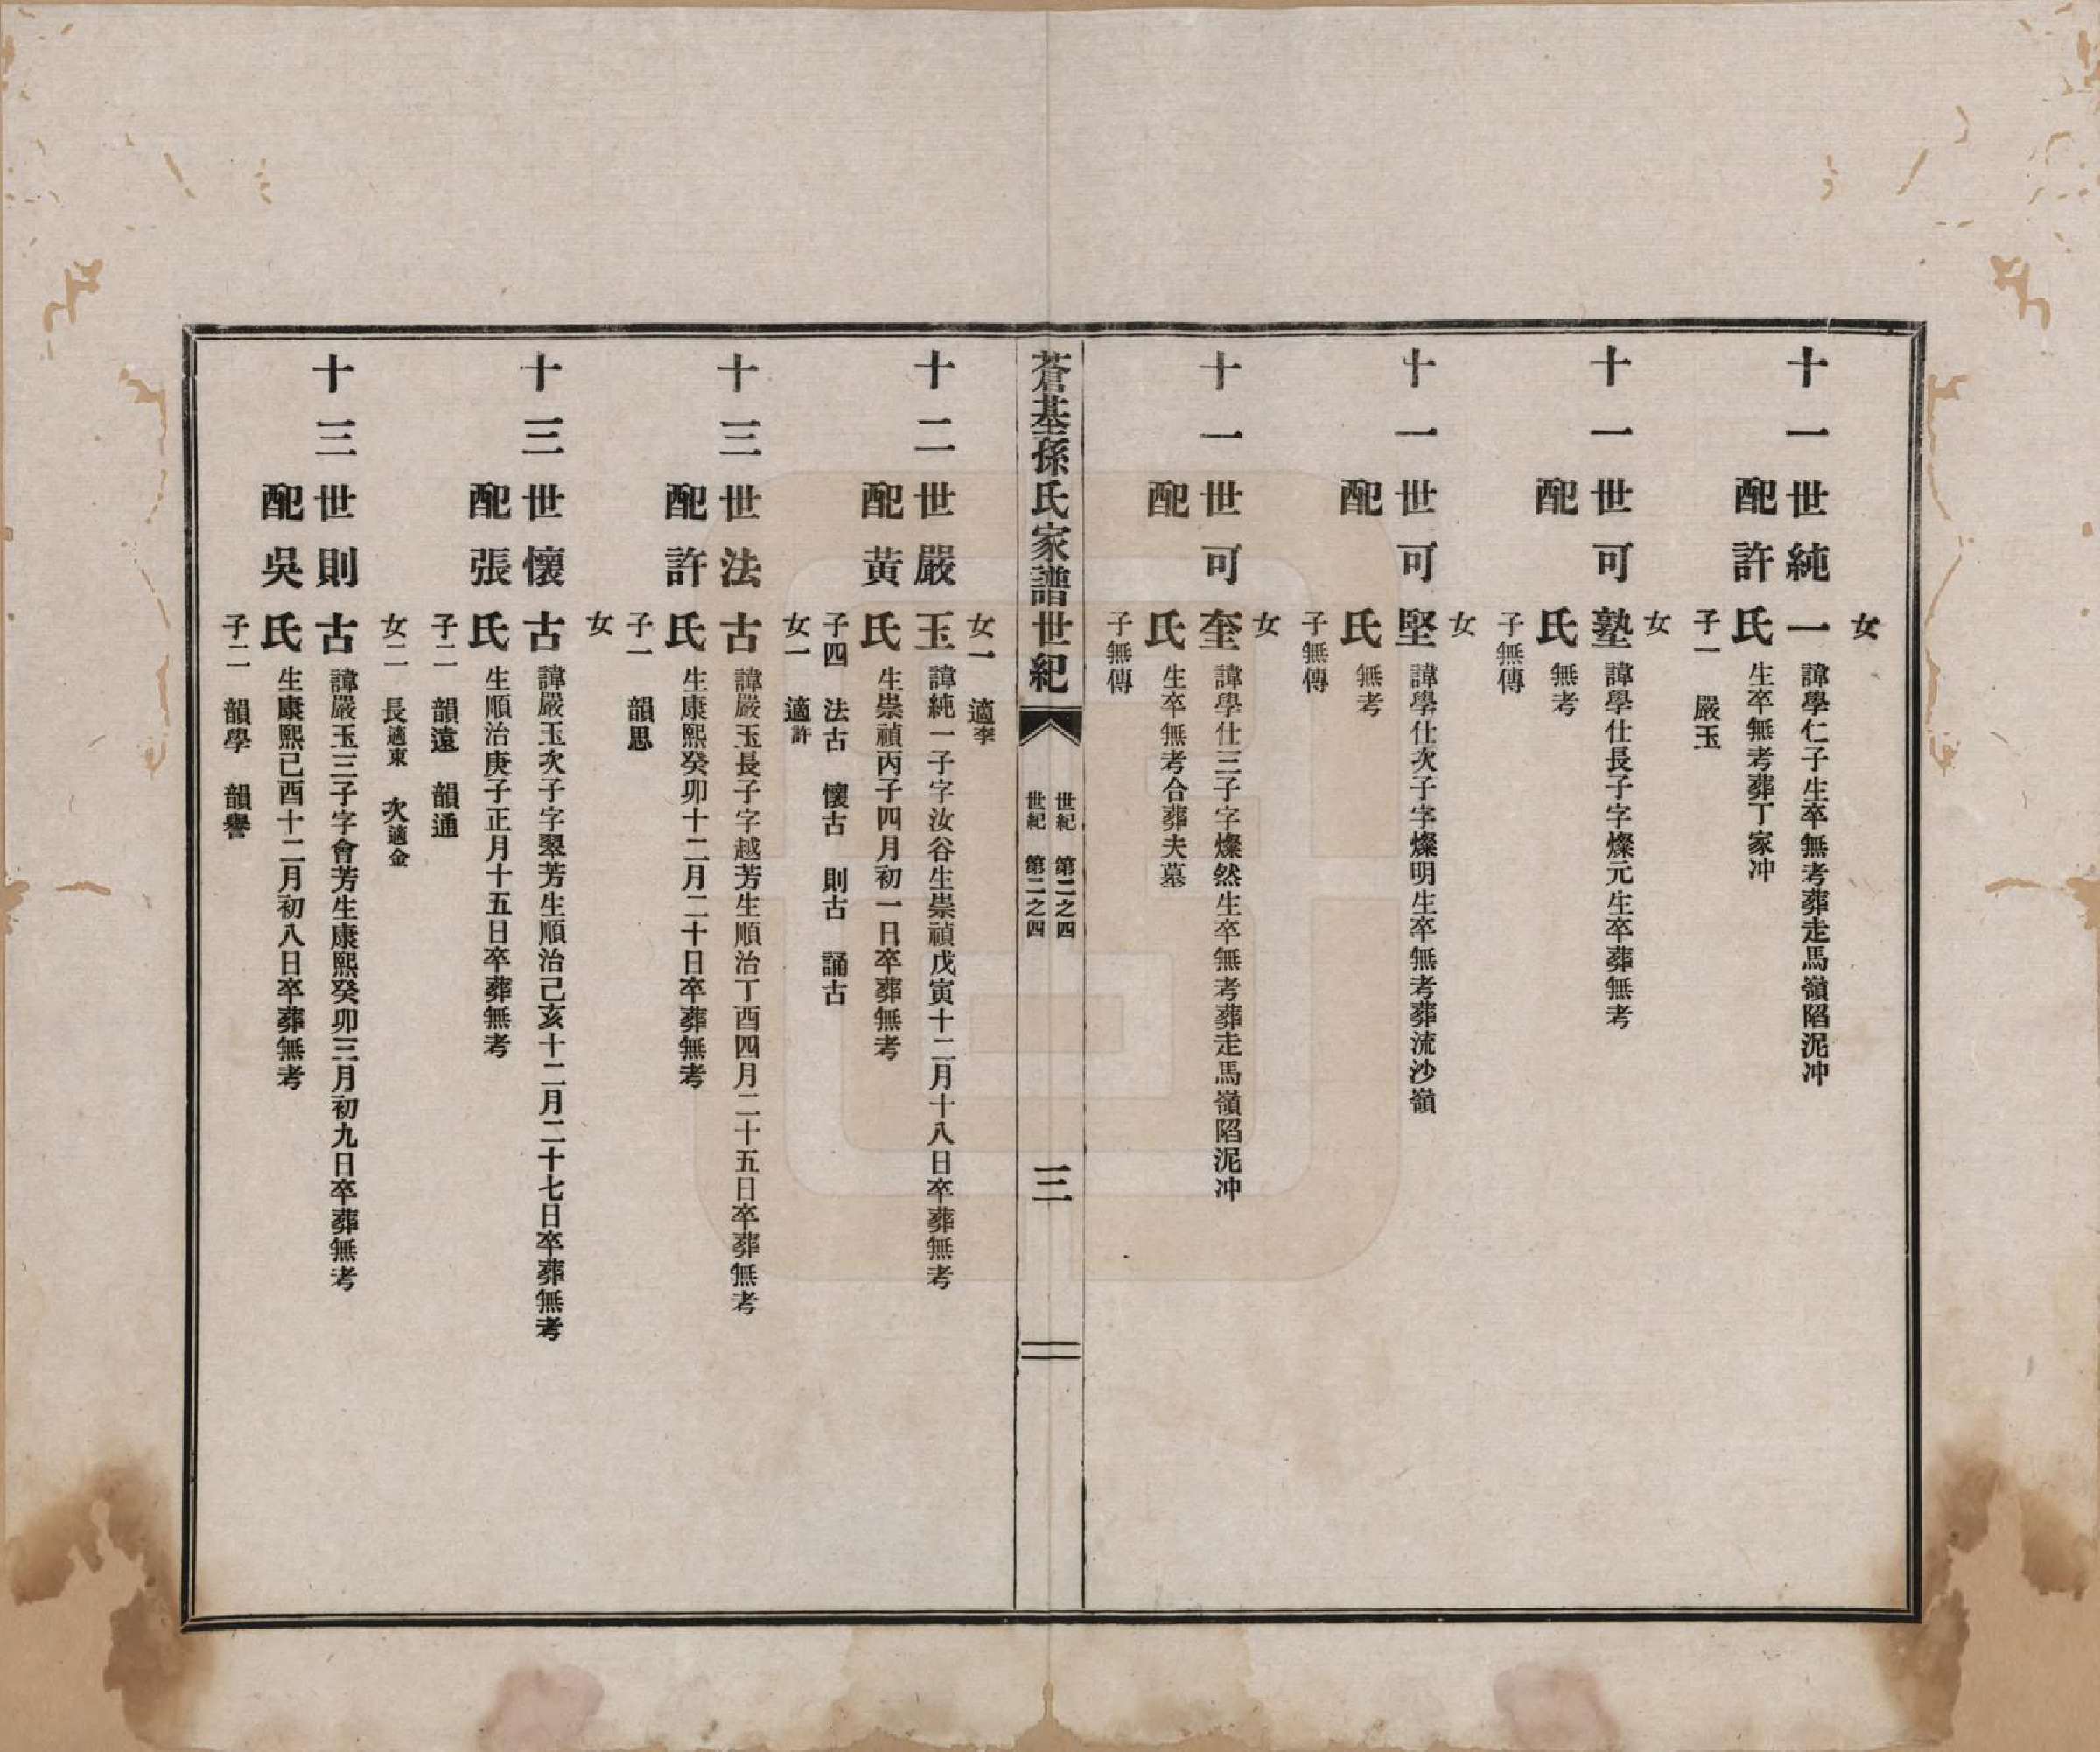 女
十一世純一 諱學仁子生卒無考葬走馬嶺陷泥冲
配許氏 生卒無考葬丁家冲
子一 嚴玉
女
十一世可塾 諱學仕長子字燦元生卒葬無考
配 氏 無考
子無傳
女
十一世可堅 諱學仕次子字燦明生卒無考葬流沙嶺
配 氏 無考
子無傳
女
十一世可奎 諱學仕三子字燦然生卒無考葬走馬嶺陷泥冲
配 氏 生卒無考合葬夫墓
子無傳
蒼基孫氏家譜世紀
世紀 第二之四
世紀 第二之四
三
女一 適李
十二世嚴玉 諱純一子字汝谷生崇禎戊寅十二月十八日卒葬無考
配黃氏 生崇禎丙子四月初一日卒葬無考
子四 法古 懷古 則古 誦古
女一 適許
十三世法古 諱嚴玉長子字越芳生順治丁酉四月二十五日卒葬無考
配許氏 生康熙癸卯十二月二十日卒葬無考
子一 韻思
女
十三世懷古 諱嚴玉次子字翠芳生順治己亥十二月二十七日卒葬無考
配張氏 生順治庚子正月十五日卒葬無考
子二 韻遠 韻通
女二 長適東 次適金
十三世則古 諱嚴玉三子字會芳生康熙癸卯三月初九日卒葬無考
配吳氏 生康熙己酉十二月初八日卒葬無考
子二 韻學 韻譽